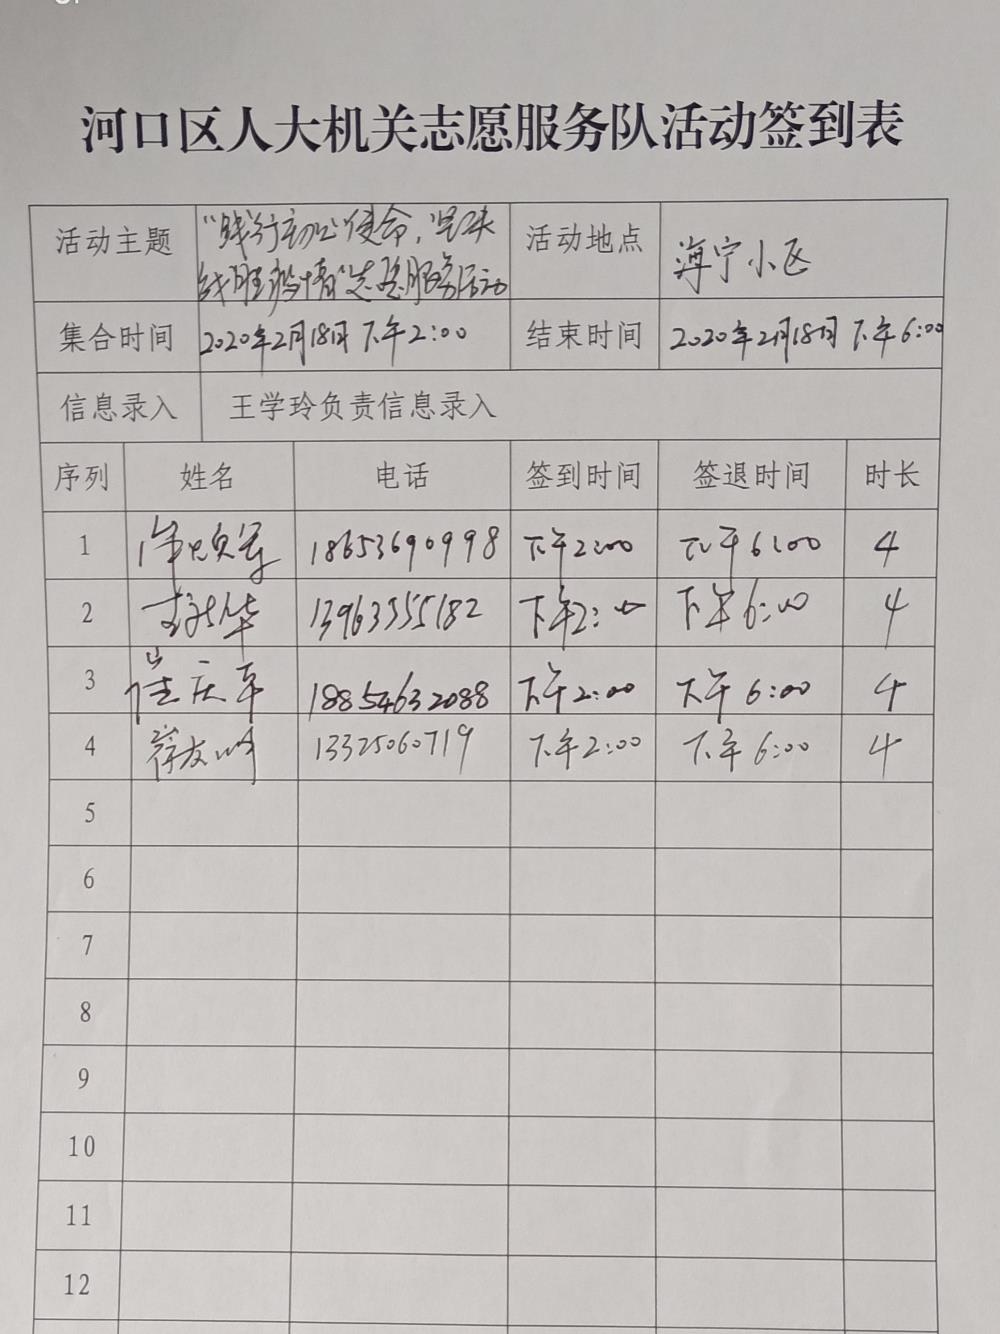 河口区人大机关志愿服务队活动签到表
活动主题 "践行初心使命,坚决战胜疫情"志愿服务活动 活动地点 海宁小区
集合时间 2020年2月18日下午2:00 结束时间 2020年2月18日下午6:00
信息录入 王学玲负责信息录入
序列 姓名 电话 签到时间 签退时间 时长
1 18653690998 下午2:00 下午6:00 4
2 13963355182 下午2:00 下午6:00 4
3 崔庆军 18854632088 下午2:00 下午6:00 4
4 13325060719 下午2:00 下午6:00 4
5
6
7
8
9
10
11
12